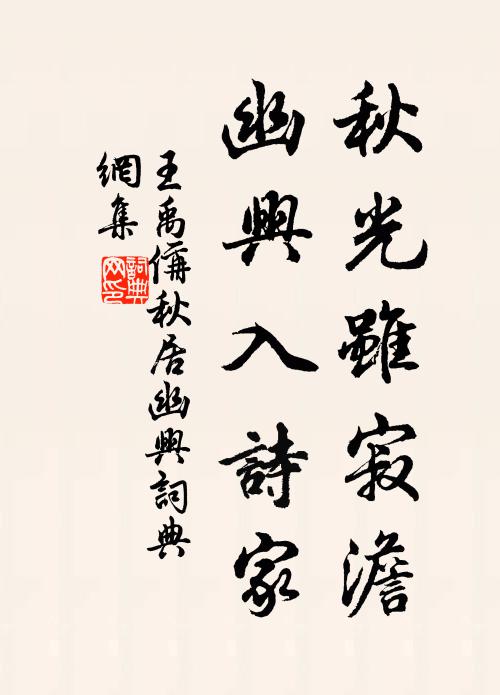 秋光雖寂澹
幽興入詩家
王禹偁秋居幽興詞典
網集
詞典
网印